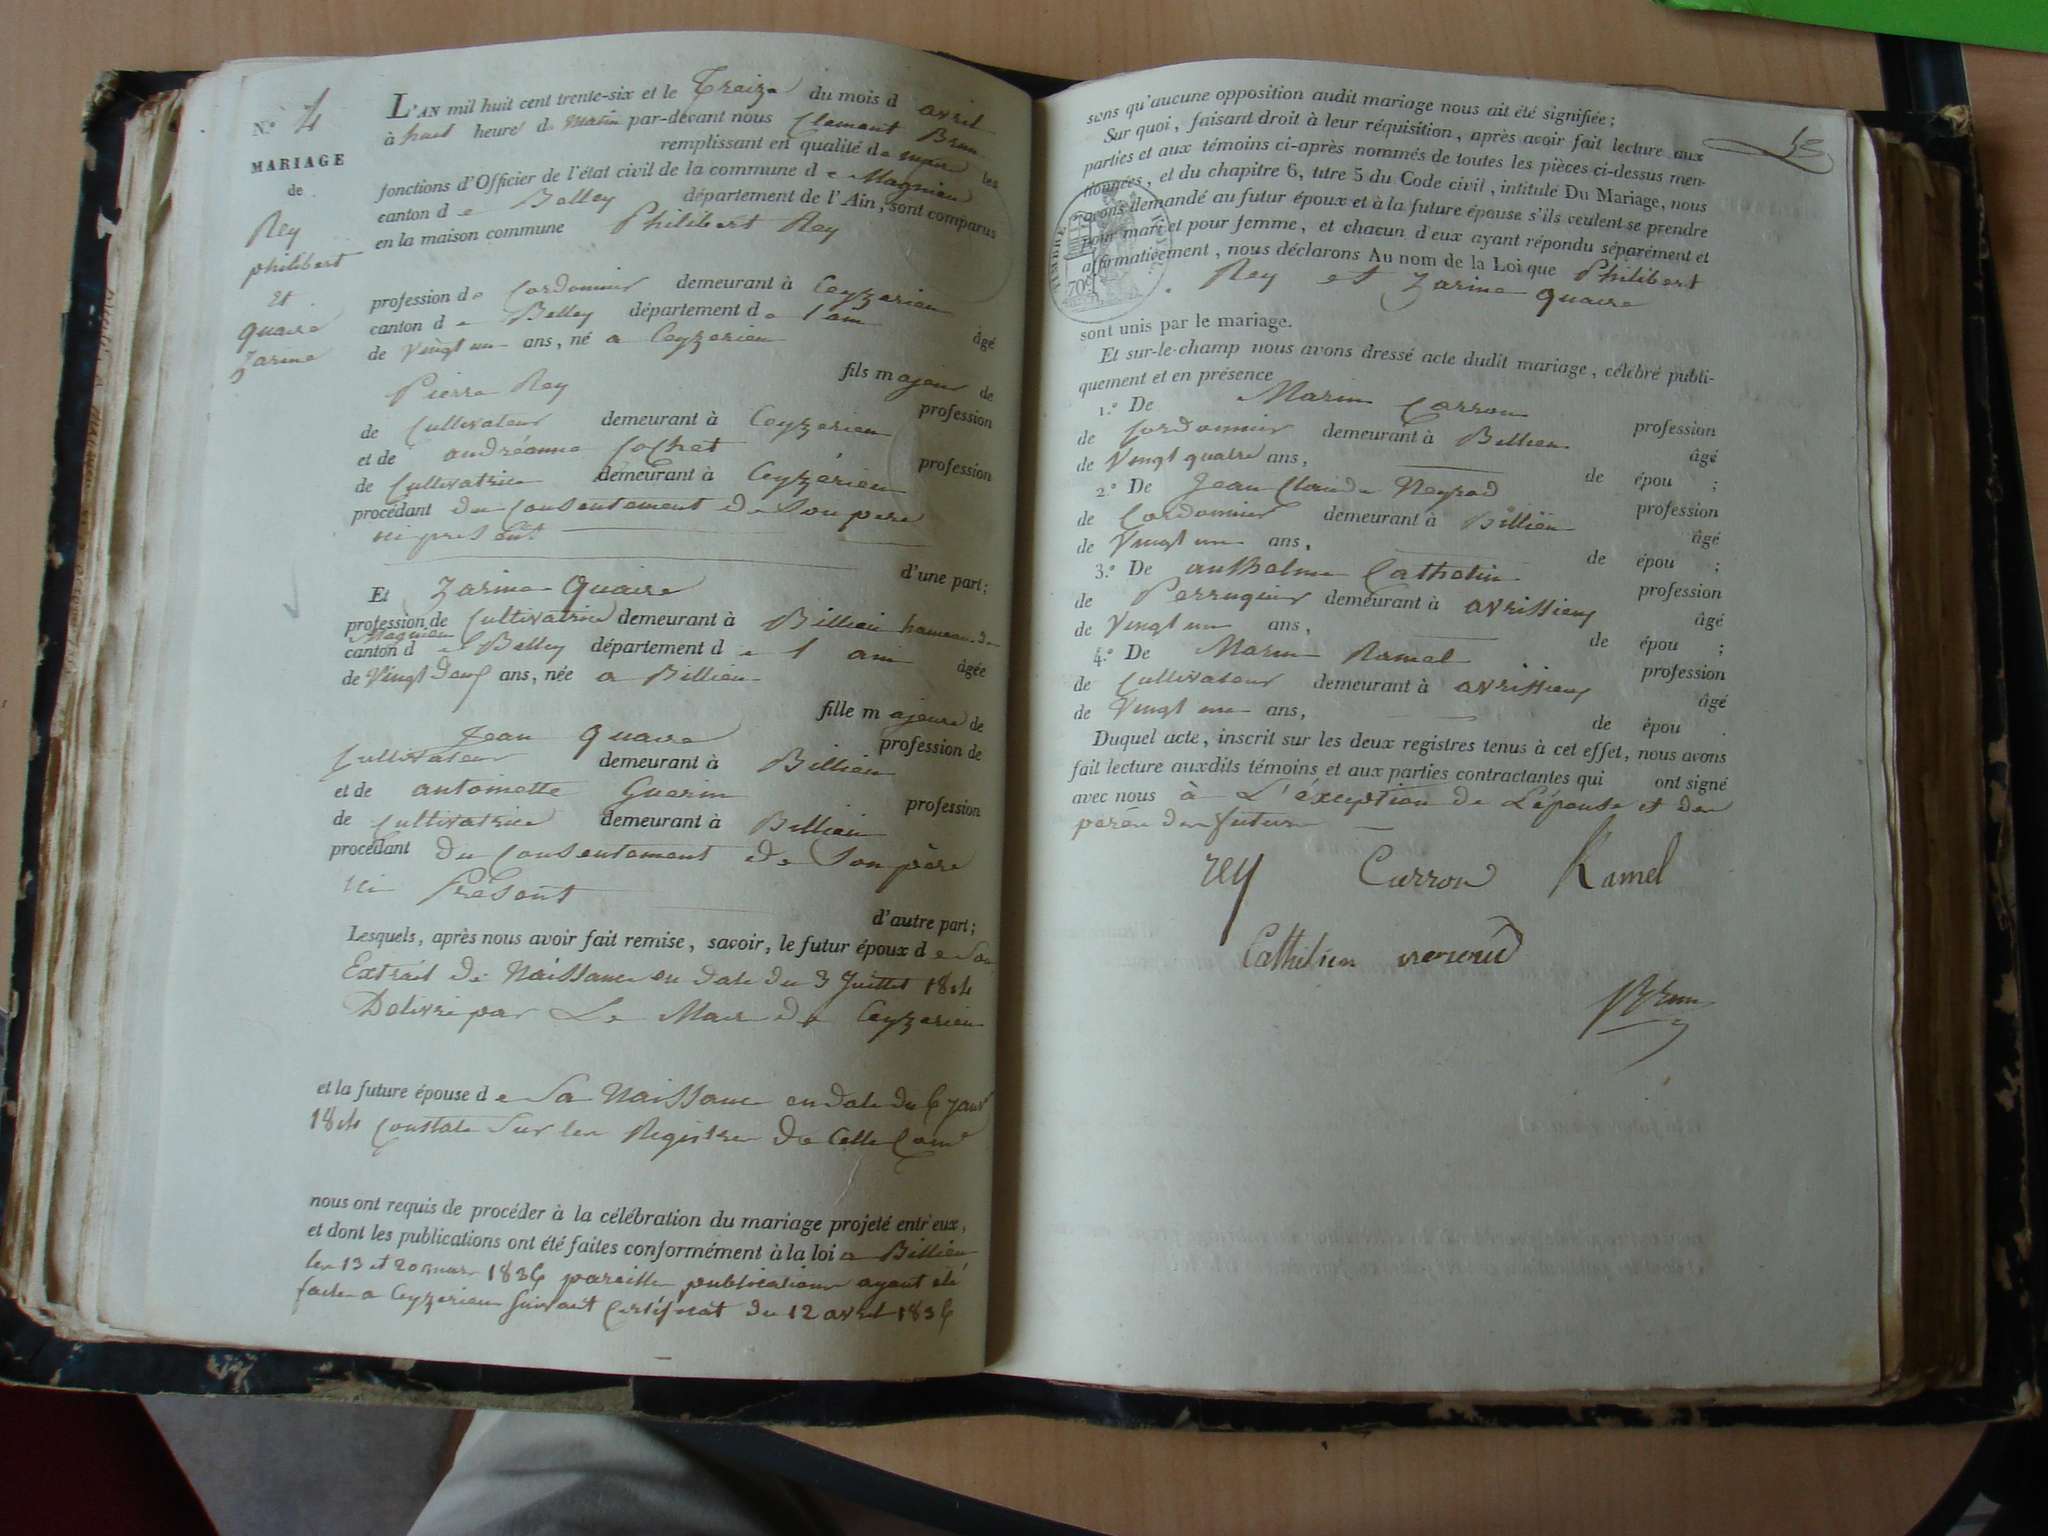 N.° 4
MARIAGE
de
Rey
philibert
Et
Quaire
Zarine
L'AN mil huit cent trente-six et le Treize du mois d avril
à huit heure de Matin par-devant nous Clement Brun
remplissant en qualité de maire les
fonctions d'Officier de l'état civil de la commune de Magnieu
canton de Belley département de l'Ain, sont comparus
en la maison commune Philibert Rey
profession de Cordonnier demeurant à Ceyzerieu
canton de Belley département de l'ain âgé
de Vingt un ans, né a Ceyzerieu
fils majeur de
Pierre Rey profession
de Cultivateur demeurant à Ceyzerieu
et de andréanne Cochet profession
de Cultivatrice demeurant à Ceyzérieu
procédant du Consentement de Son pere
ici present
d'une part;
Et Zarine Quaire
profession de Cultivatrice demeurant à Billieu hameau de
Magnieu
canton de Belley département de l'ain âgée
de Vingt deux ans, née a Billieu
fille majeure de
Jean Quaire profession de
Cultivateur demeurant à Billieu
et de antoinette Guerin profession
de Cultivatrice demeurant à Billieu
procédant du Consentement de Son père
ici Présent
d'autre part;
Lesquels, après nous avoir fait remise, savoir, le futur époux de Son
Extrait de Naissance en date du 3 Juillet 1814
Delivré par Le Maire de Ceyzerieu
et la future épouse de Sa Naissance en date du 6 janv
1814 Constate Sur les Registres de Cette Com
nous ont requis de procéder à la célébration du mariage projeté entr'eux,
et dont les publications ont été faites conformément à la loi a Billieu
les 13 et 20 mars 1836 pareilles publications ayant été
faites a Ceyzerieu Suivant Certificat du 12 avril 1836
sans qu'aucune opposition audit mariage nous ait été signifiée;
Sur quoi, faisant droit à leur réquisition, après avoir fait lecture aux
parties et aux témoins ci-après nommés de toutes les pièces ci-dessus men-
tionnées, et du chapitre 6, titre 5 du Code civil, intitulé Du Mariage, nous
avons demandé au futur époux et à la future épouse s'ils veulent se prendre
pour mari et pour femme, et chacun d'eux ayant répondu séparément et
affirmativement, nous déclarons Au nom de la Loi que Philibert
Rey et Zarine Quaire
TIMBRE
70c
sont unis par le mariage.
Et sur-le-champ nous avons dressé acte dudit mariage, célébré publi-
quement et en présence
1.° De Marin Carron profession
de Cordonnier demeurant à Billieu âgé
de Vingt quatre ans, de épou ;
2.° De Jean Claude Neyrod profession
de Cordonnier demeurant à Billieu âgé
de Vingt un ans, de épou ;
3.° De anthelme Cathelin profession
de Perruquier demeurant à avrissieu âgé
de Vingt un ans, de épou ;
4.° De Marin Ramel profession
de Cultivateur demeurant à avrissieu âgé
de Vingt un ans, de épou .
Duquel acte, inscrit sur les deux registres tenus à cet effet, nous avons
fait lecture auxdits témoins et aux parties contractantes qui ont signé
avec nous à L'éxception de L'épouse et des
pères des futurs
rey Carron Ramel
Cathelien
Brun